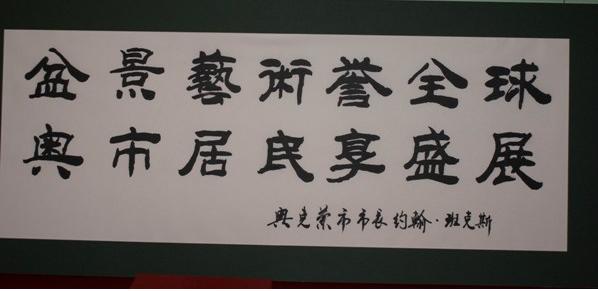 盆景藝術誉全球
奥市居民享盛展
奥克蘭市市長約翰·班克斯